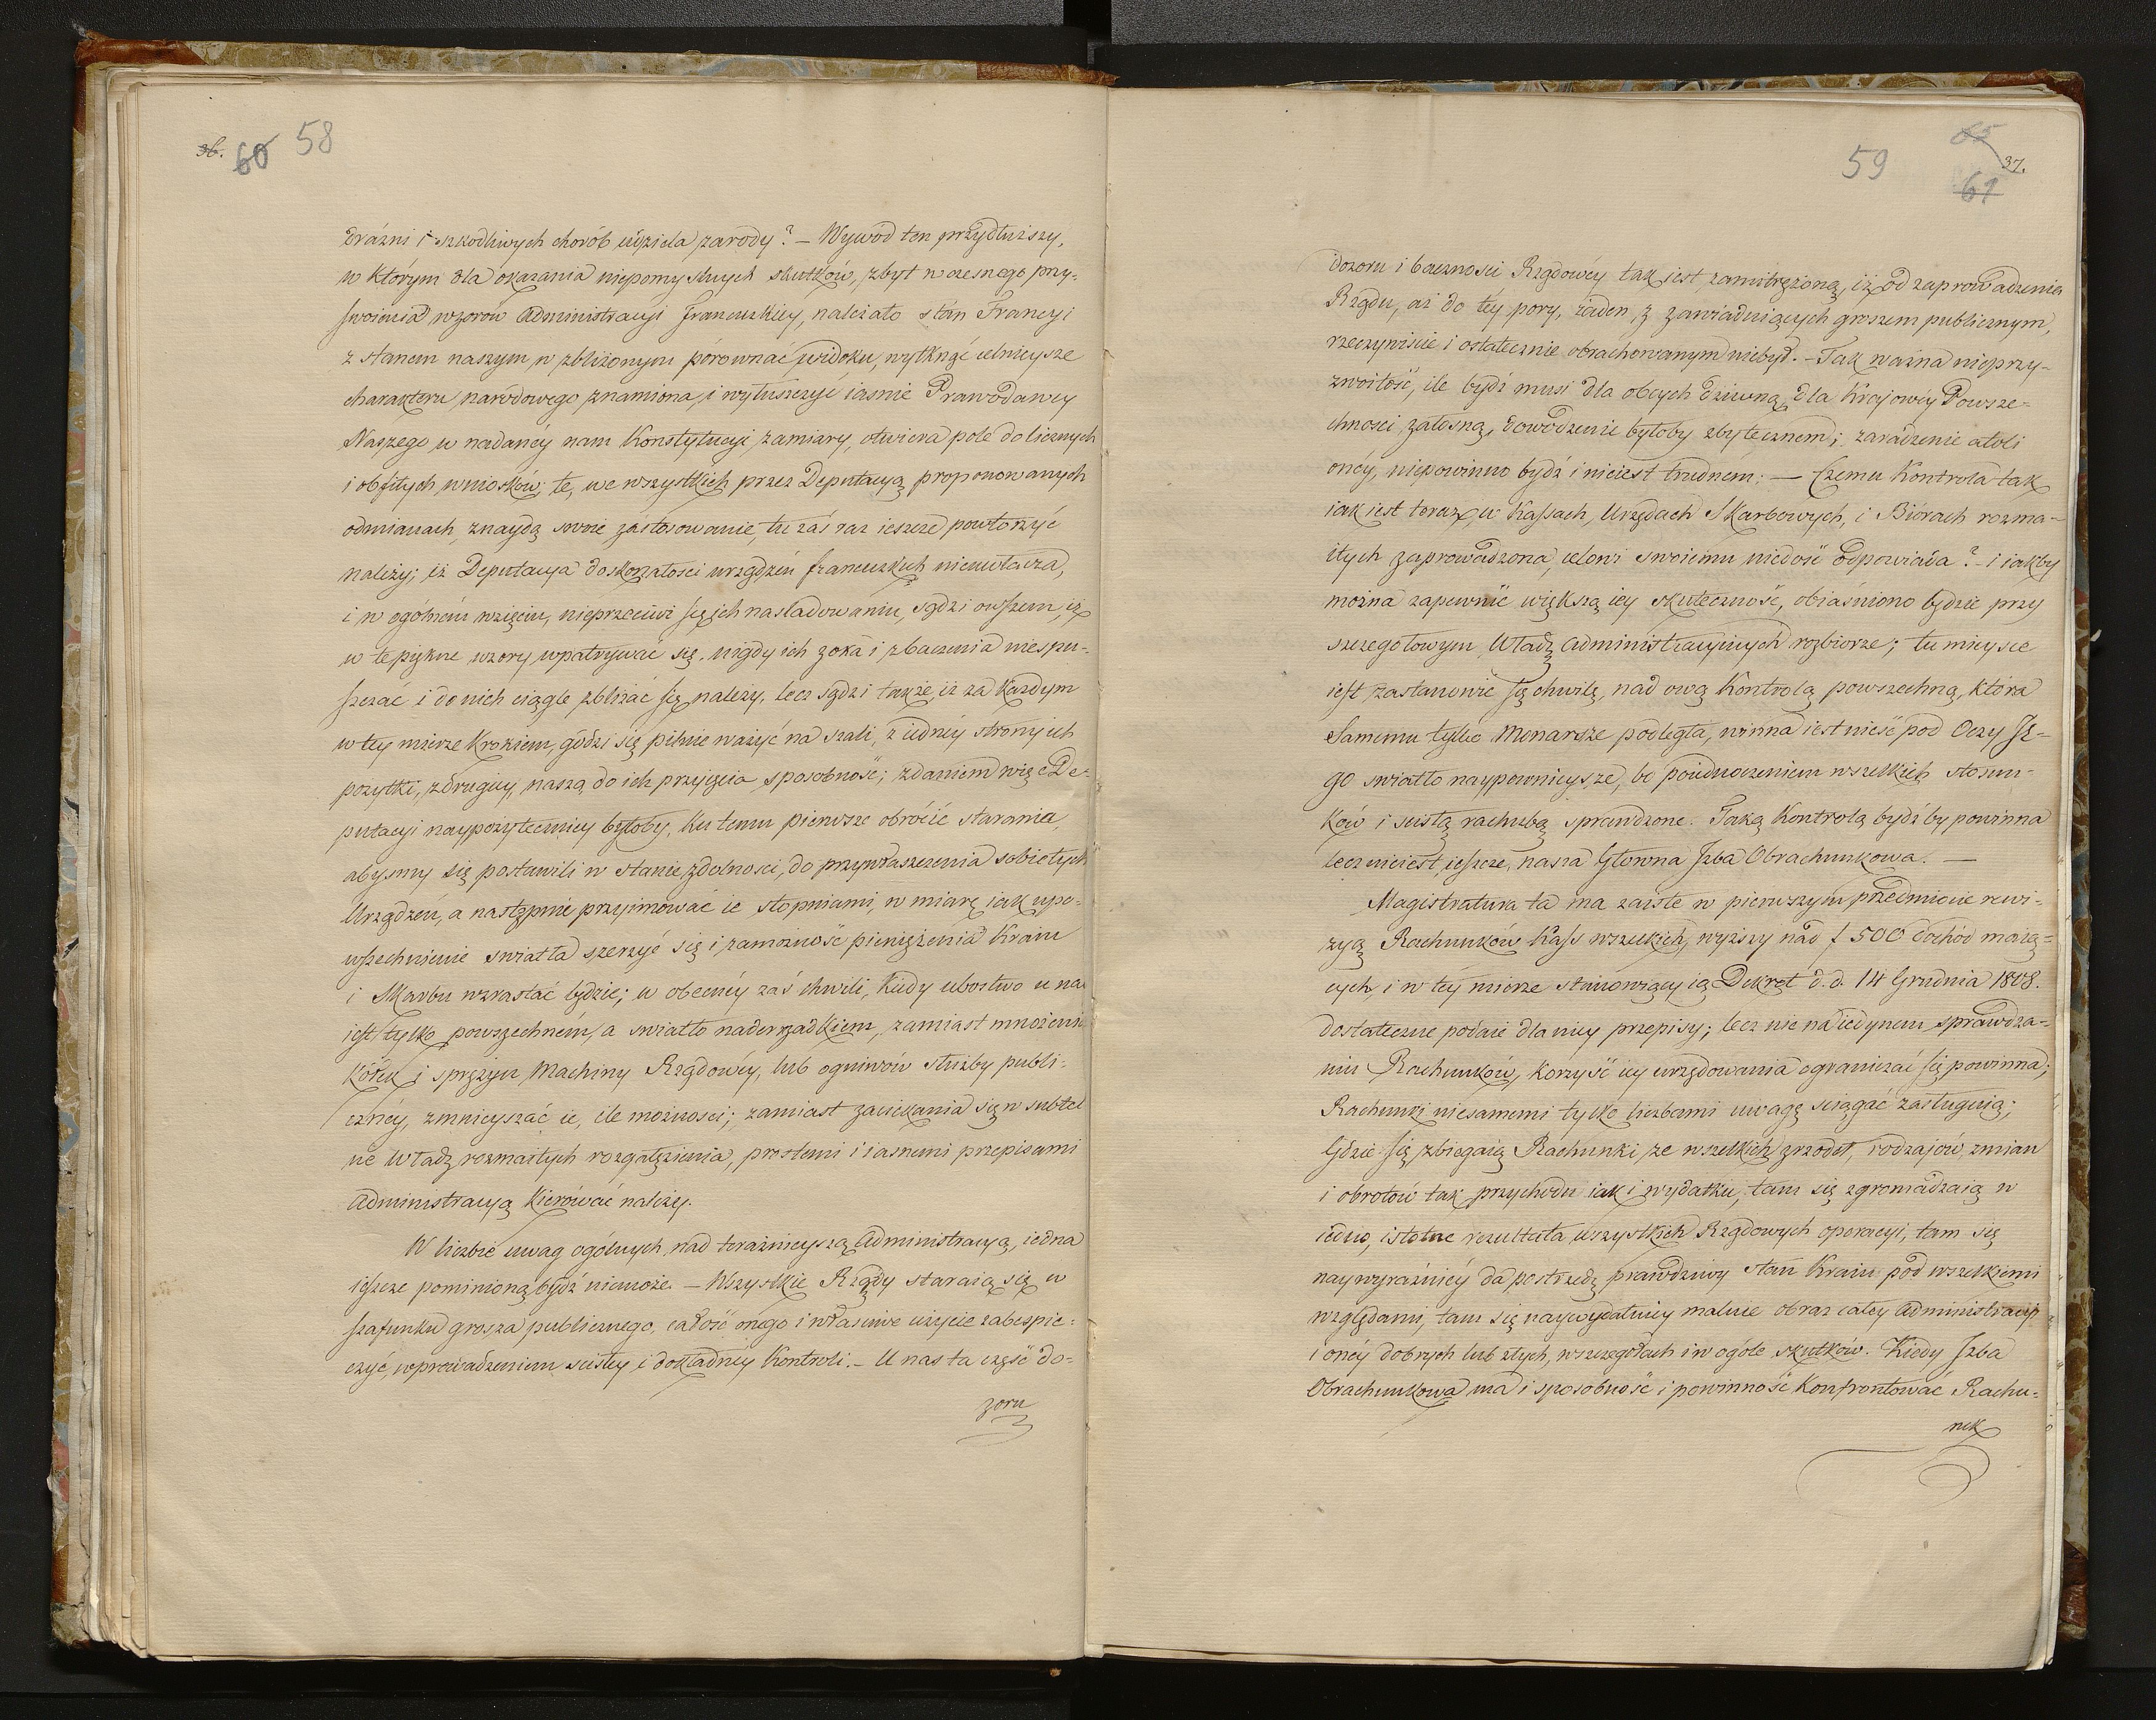 36. 60 58
drażni i szkodliwych chorób udziela zarody? — Wywod ten przydłuższy,
w którym dla okazania niepomyslnych skutków, zbyt wczesnego przy-
swoienia wzorów Administracyi francuzkiey, należało stan Francyi
z stanem naszym w zbliżonym porownać widoku, wytknąć celnieysze
charakteru narodowego znamiona, i wyłuszczyć iasnie Prawodawcy
Naszego w nadanéy nam Konstytucyi zamiary, otwiera pole do licznych
i obfitych wniosków; te, we wszystkich przez Deputacyą proponowanych
odmianach, znaydą swoie zastosowanie, tu zaś raz ieszcze powtorzyć
należy; iż Deputacya doskonałosci urządzeń francuzkich nieuwłacza,
i w ogólném wzięciu, nieprzeciwi się ich nasladowaniu, sądzi owszem, iż
w te piękne wzory wpatrywać się, nigdy ich z oka i zbaczenia niespu-
szczac i do nich ciągle zbliżać się należy, lecz sądzi także, iż za każdym
w tey mierze krokiem, godzi się pilnie ważyć na szali, z iednéy strony ich
pożytki, z drugiey, naszą do ich przyięcia sposobność; zdaniem więc De-
putacyi naypożyteczniey byłoby, ku temu pierwsze obrócić starania,
abysmy się postawili w stanie zdolnosci, do przywłaszczenia sobie tych
Urządzeń, a nastąpnie przyimować ie stopniami, w miarę iak upo-
wszechnienie swiatła szerzyć się i zamożność pieniężenia Kraiu
i Skarbu wzrastać będzie; w obecnéy zaś chwili, kiedy ubostwo u nas
iest tylko powszechném, a swiatło nader rzadkiem, zamiast mnożenia
kółek i sprężyn Machiny Rządowéy, lub ogniwów służby publi-
cznéy, zmnieyszać ie, ile możnosci; zamiast zaciekania się w subtel
ne Władz rozmaitych rozgałęzienia, prostemi i iasnemi przepisami
Administracyą kierówać należy.
W liczbie uwag ogólnych, nad terażnieyszą Administracyą, iedna
ieszcze pominioną bydź niemoże. — Wszystkie Rządy staraią się w
szafunku grosza publicznego, całość onego i własciwe użycie zabespie-
czyć, wprowadzeniem scisłey i dokładney Kontroli. — U nas ta część do-
zoru
59 65 37.
61
dozoru i bacznosci Rządowéy tak iest zamitrężoną, iż od zaprowadzenia
Rządu, aż do téy pory, żaden, z zawiaduiących groszem publicznym,
rzeczywiscie i ostatecznie obrachowanym niebył. — Tak ważna nieprzy-
zwoitość, ile bydź musi dla obcych dziwną, dla Krajowéy Powsze-
chnosci żałosną, dowodzenie byłoby zbytecznem; zaradzenie atoli
onéy, niepowinno bydź i nieiest trudném. — Czemu Kontrola tak
iak iest teraz w Kassach, Urzędach Skarbowych, i Biórach rozma-
itych zaprowadzona, celowi swoiemu niedość odpowiada? — i iakby
można zapewnić większą iey skuteczność, obiaśniono będzie przy
szczegołowym Władz Administracyinych rozbiorze; tu mieysce
iest zastanowić się chwilę, nad ową Kontrolą powszechną, która
Samemu tylko Monarsze podległa, winna iest nieść pod Oczy Je-
go swiatło naypewnieysze, bo poiednoczeniem wszelkich stosun-
ków i scisłą rachubą sprawdzone. Taką Kontrolą bydź by powinna
lecz nieiest ieszcze, nasza Główna Izba Obrachunkowa. —
Magistratura ta ma zaiste w pierwszym przedmiocie rewi-
zyą Rachunków Kass wszelkich, wyższy nad f 500 dochód maią-
cych, i w téy mierze stanowiący ią Dekret d. d. 14 Grudnia 1808.
dostateczne podaie dla niey przepisy; lecz nie na iedynem sprawdza-
niu Rachunków, korzyść iey urzędowania ograniczać się powinna;
Rachunki niesamemi tylko liczbami uwagę sciągać zasługuią;
Gdzie się zbiegaią Rachunki, ze wszelkich zrzodeł, rodzajów, zmian
i obrotów tak przychodu iak i wydatku, tam się zgromadzaią w
iedno, istotne rezultata wszystkich Rządowych operacyi, tam się
naywyraźniéy da postrzedz prawdziwy stan Kraiu pod wszelkiemi
względami, tam się naywydatniey maluie obraz całey Administracyi
i onéy dobrych lub złych, w szczegółach i w ogóle skutków. Kiedy Izba
Obrachunkowa ma i sposobność i powinność konfrontować Rachu-
nek